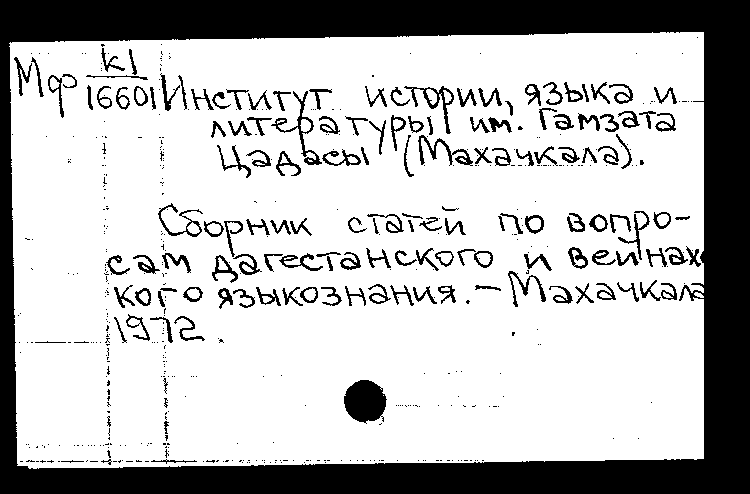 Мф k1
16601 Институт истории, языка и
литературы им. Гамзата
Цадасы (Махачкала).
Сборник статей по вопро-
сам дагестанского и вейнахс
кого языкознания. – Махачкала
1972.